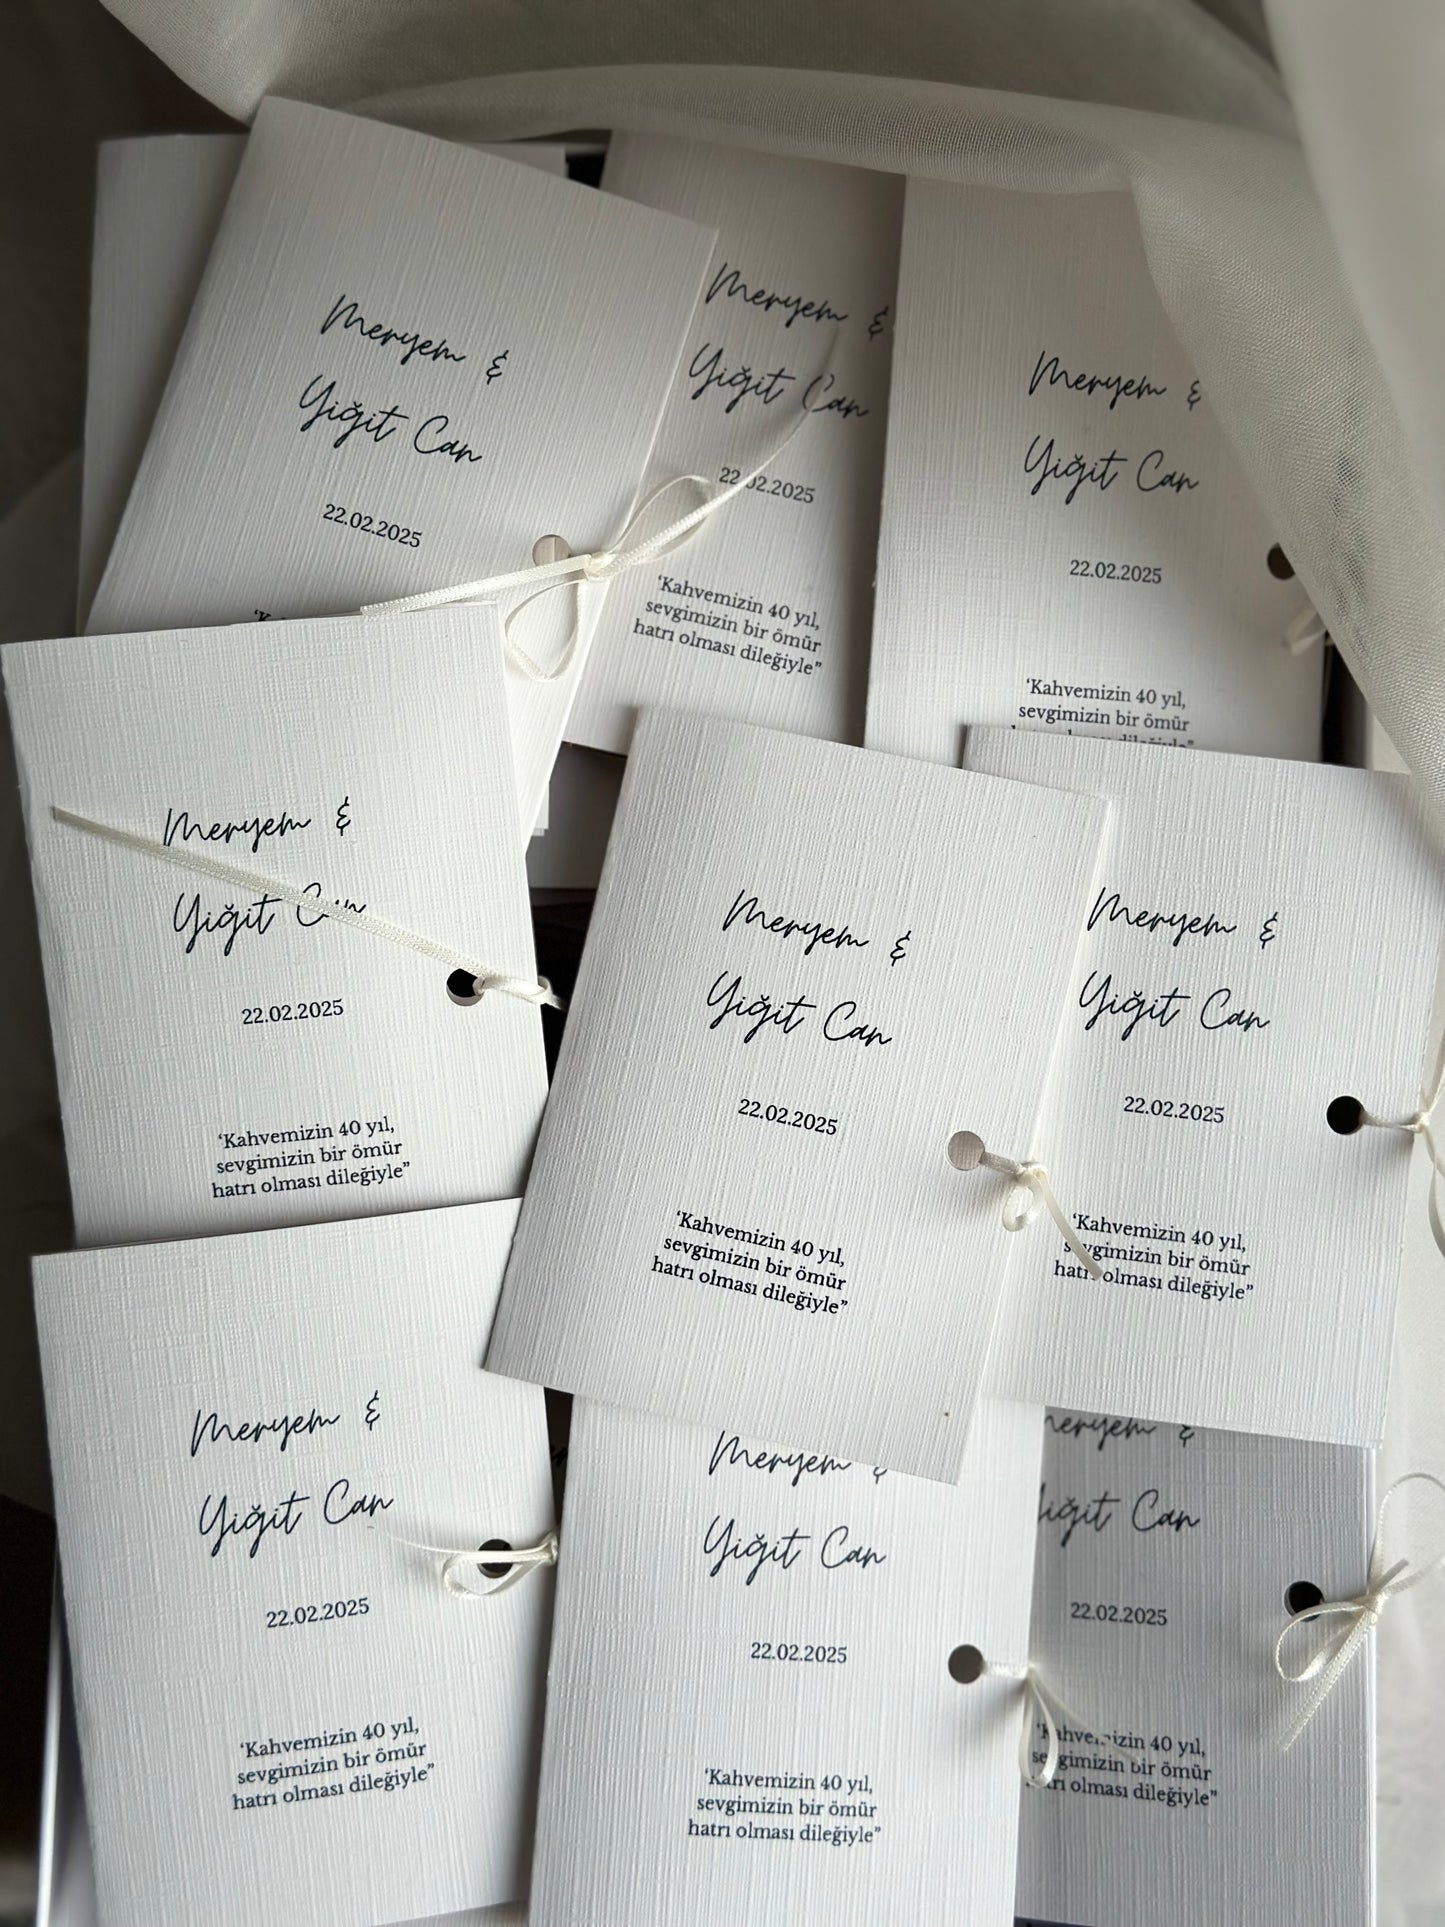 Meryem &
Yiğit Can
22.02.2025
Meryem &
Yiğit Can
22.02.2025
‘Kahvemizin 40 yıl,
sevgimizin bir ömür
hatrı olması dileğiyle”
Meryem &
Yiğit Can
22.02.2025
‘Kahvemizin 40 yıl,
sevgimizin bir ömür
Meryem &
Yiğit Can
22.02.2025
‘Kahvemizin 40 yıl,
sevgimizin bir ömür
hatrı olması dileğiyle”
Meryem &
Yiğit Can
22.02.2025
‘Kahvemizin 40 yıl,
sevgimizin bir ömür
hatrı olması dileğiyle”
Meryem &
Yiğit Can
22.02.2025
‘Kahvemizin 40 yıl,
sevgimizin bir ömür
hatrı olması dileğiyle”
Meryem &
Yiğit Can
22.02.2025
‘Kahvemizin 40 yıl,
sevgimizin bir ömür
hatrı olması dileğiyle”
Meryem &
Yiğit Can
22.02.2025
‘Kahvemizin 40 yıl,
sevgimizin bir ömür
hatrı olması dileğiyle”
Meryem &
Yiğit Can
22.02.2025
‘Kahvemizin 40 yıl,
sevgimizin bir ömür
hatrı olması dileğiyle”